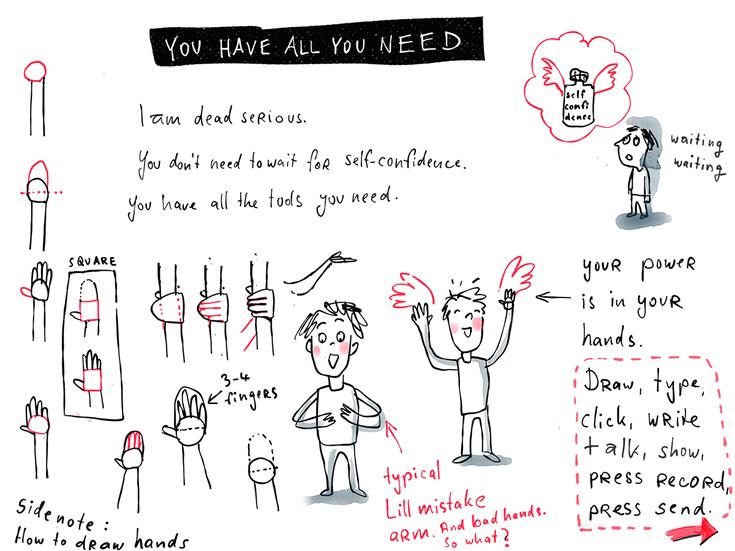 YOU HAVE ALL YOU NEED
I am dead serious.
You don't need to wait for self-confidence.
You have all the tools you need.
self
confi
dence
waiting
waiting
SQUARE
3-4
fingers
your power
is in your
hands.
Draw, type,
click, write
talk, show,
press record,
press send.
typical
Lill mistake
arm. And bad hands.
So what?
Sidenote:
How to draw hands